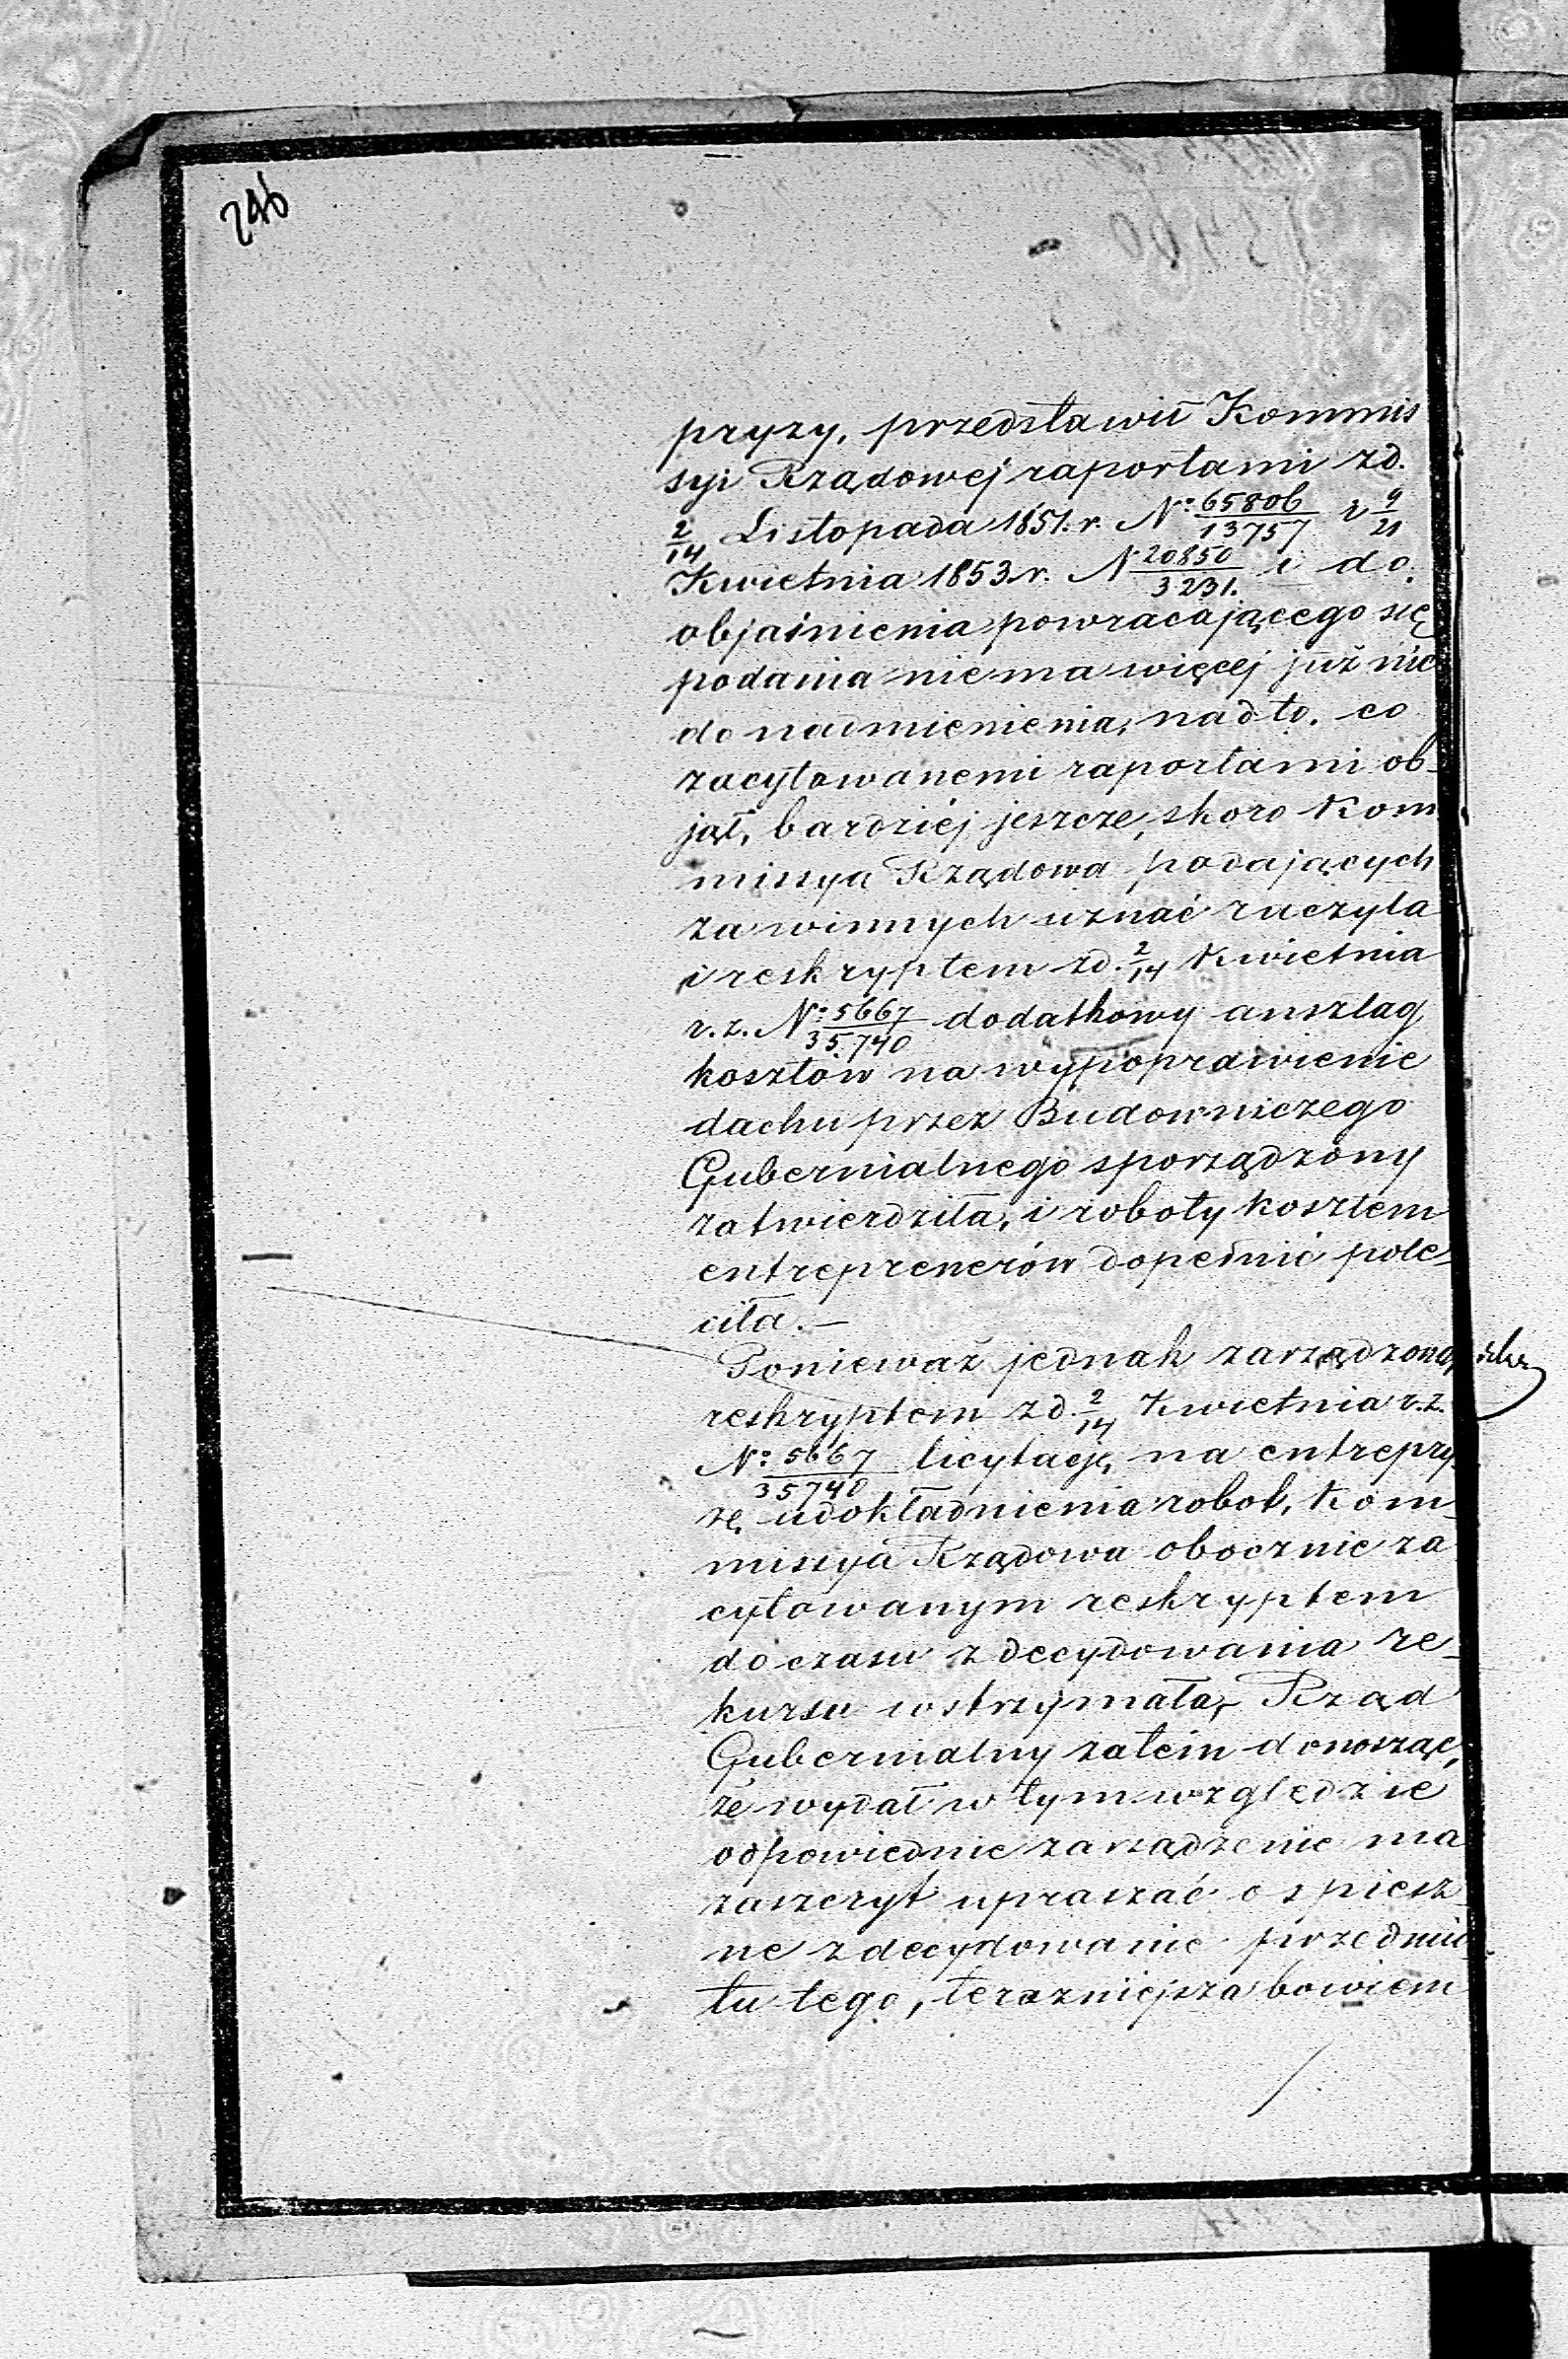 246
pryzy, przedstawił Kommis
syi Rządowej raportami z d.
2/14 Listopada 1851. r. N° 65806/13757 i 9/21
Kwietnia 1853. r. N 20850/3231. i do
objaśnienia powracającego się
podania niema więcej już nic
do nadmienienia, nad to, co
zacytowanemi raportami ob-
jął, bardziéj jeszcze, skoro Kom
missya Rządowa podających
za winnych uznać raczyła
i reskryptem z d. 2/14 Kwietnia
r. z. N° 5667/35740 dodatkowy anszlag
kosztów na wypoprawienie
dachu przez Budowniczego
Gubernialnego sporządzony
zatwierdziła, i roboty kosztem
entreprenerów dopełnić pole-
ciła. —
Ponieważ jednak zarządzoną
reskryptem z d. 2/14 Kwietnia r. z.
N° 5667/35740 licytację na entrepry
zę udokładnienia robót, Kom-
missya Rządowa obocznie za
cytowanym reskryptem
do czasu zdecydowania re-
kursu wstrzymała, Rząd
Gubernialny zatem donosząc,
że wydał w tym względzie
odpowiednie zarządzenie ma
zaszczyt upraszać o spiesz
ne zdecydowanie przedmio
tu tego, terazniejsza bowiem